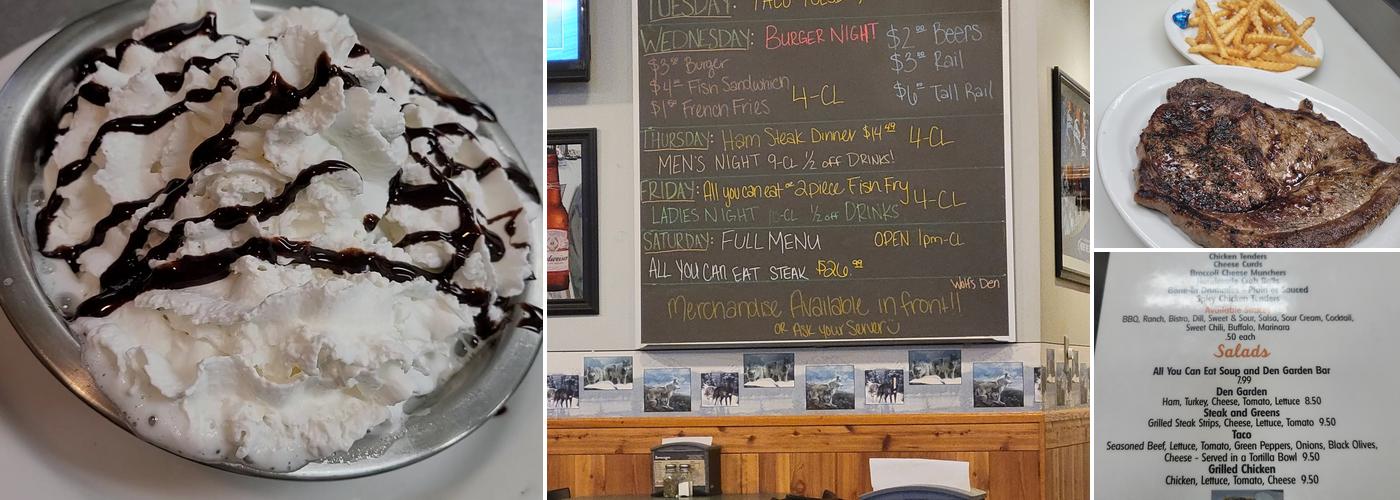 TUESDAY: TACO TUESDAY
WEDNESDAY: BURGER NIGHT $2.00 Beers
$3.00 Burger $3.00 Rail
$4.00 Fish Sandwich 4-CL $6.00 Tall Rail
$1.00 French Fries
THURSDAY: Ham Steak Dinner $14.49 4-CL
MEN'S NIGHT 9-CL 1/2 off DRINKS!
FRIDAY: All you can eat or 2 piece Fish Fry 4-CL
LADIES NIGHT 10-CL 1/2 off DRINKS
SATURDAY: FULL MENU OPEN 1pm-CL
ALL YOU CAN EAT STEAK $26.99
Wolf's Den
Merchandise Available in front!!
OR Ask your Server
Budweiser
Chicken Tenders
Cheese Curds
Broccoli Cheese Munchers
Bone-In Drummies - Plain or Sauced
Spicy Chicken Tenders
Available Sauces
BBQ, Ranch, Bistro, Dill, Sweet & Sour, Salsa, Sour Cream, Cocktail,
Sweet Chili, Buffalo, Marinara
.50 each
Salads
All You Can Eat Soup and Den Garden Bar
7.99
Den Garden
Ham, Turkey, Cheese, Tomato, Lettuce 8.50
Steak and Greens
Grilled Steak Strips, Cheese, Lettuce, Tomato 9.50
Taco
Seasoned Beef, Lettuce, Tomato, Green Peppers, Onions, Black Olives,
Cheese - Served in a Tortilla Bowl 9.50
Grilled Chicken
Chicken, Lettuce, Tomato, Cheese 9.50